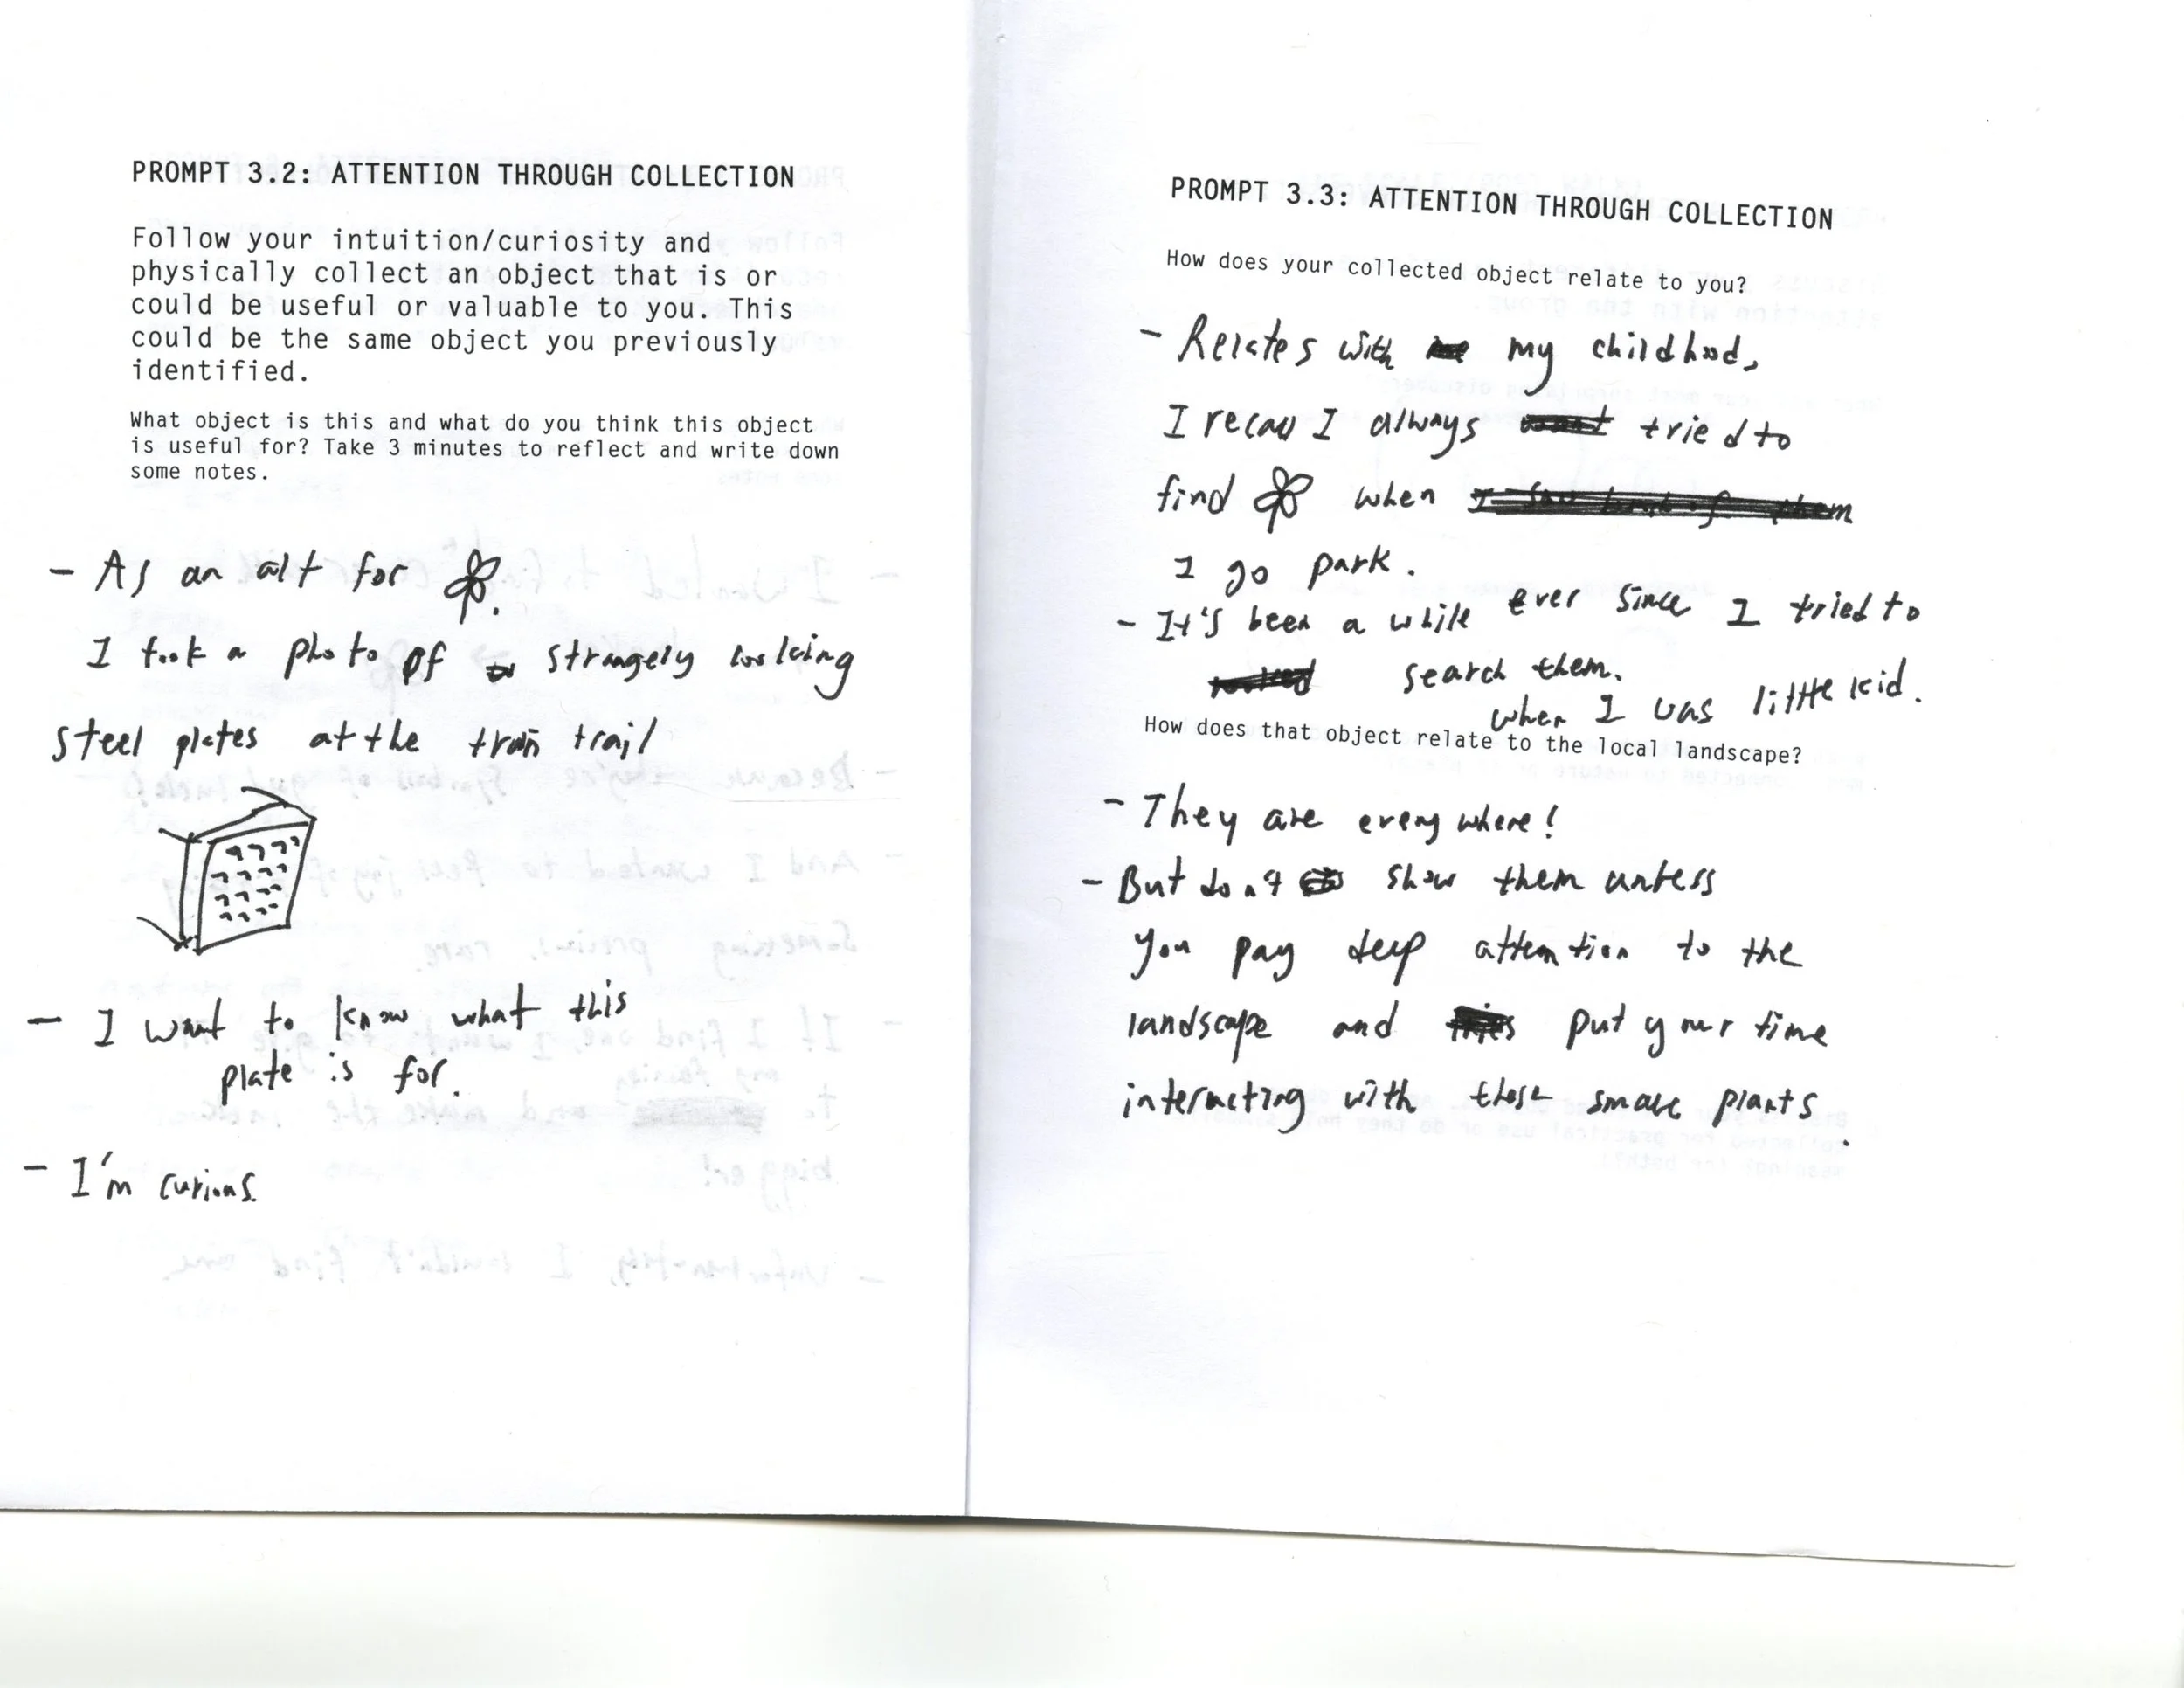 PROMPT 3.2: ATTENTION THROUGH COLLECTION
Follow your intuition/curiosity and
physically collect an object that is or
could be useful or valuable to you. This
could be the same object you previously
identified.
What object is this and what do you think this object
is useful for? Take 3 minutes to reflect and write down
some notes.
- As an alt for .
I took a photo of strangely looking
steel plates at the train trail
- I want to know what this
plate is for.
- I'm curious.
PROMPT 3.3: ATTENTION THROUGH COLLECTION
How does your collected object relate to you?
- Relates with my childhood,
I recall I always tried to
find when
I go park.
- It's been a while ever since I tried to
search them.
when I was little kid.
How does that object relate to the local landscape?
- They are everywhere!
- But don't show them unless
you pay deep attention to the
landscape and put your time
interacting with those small plants.